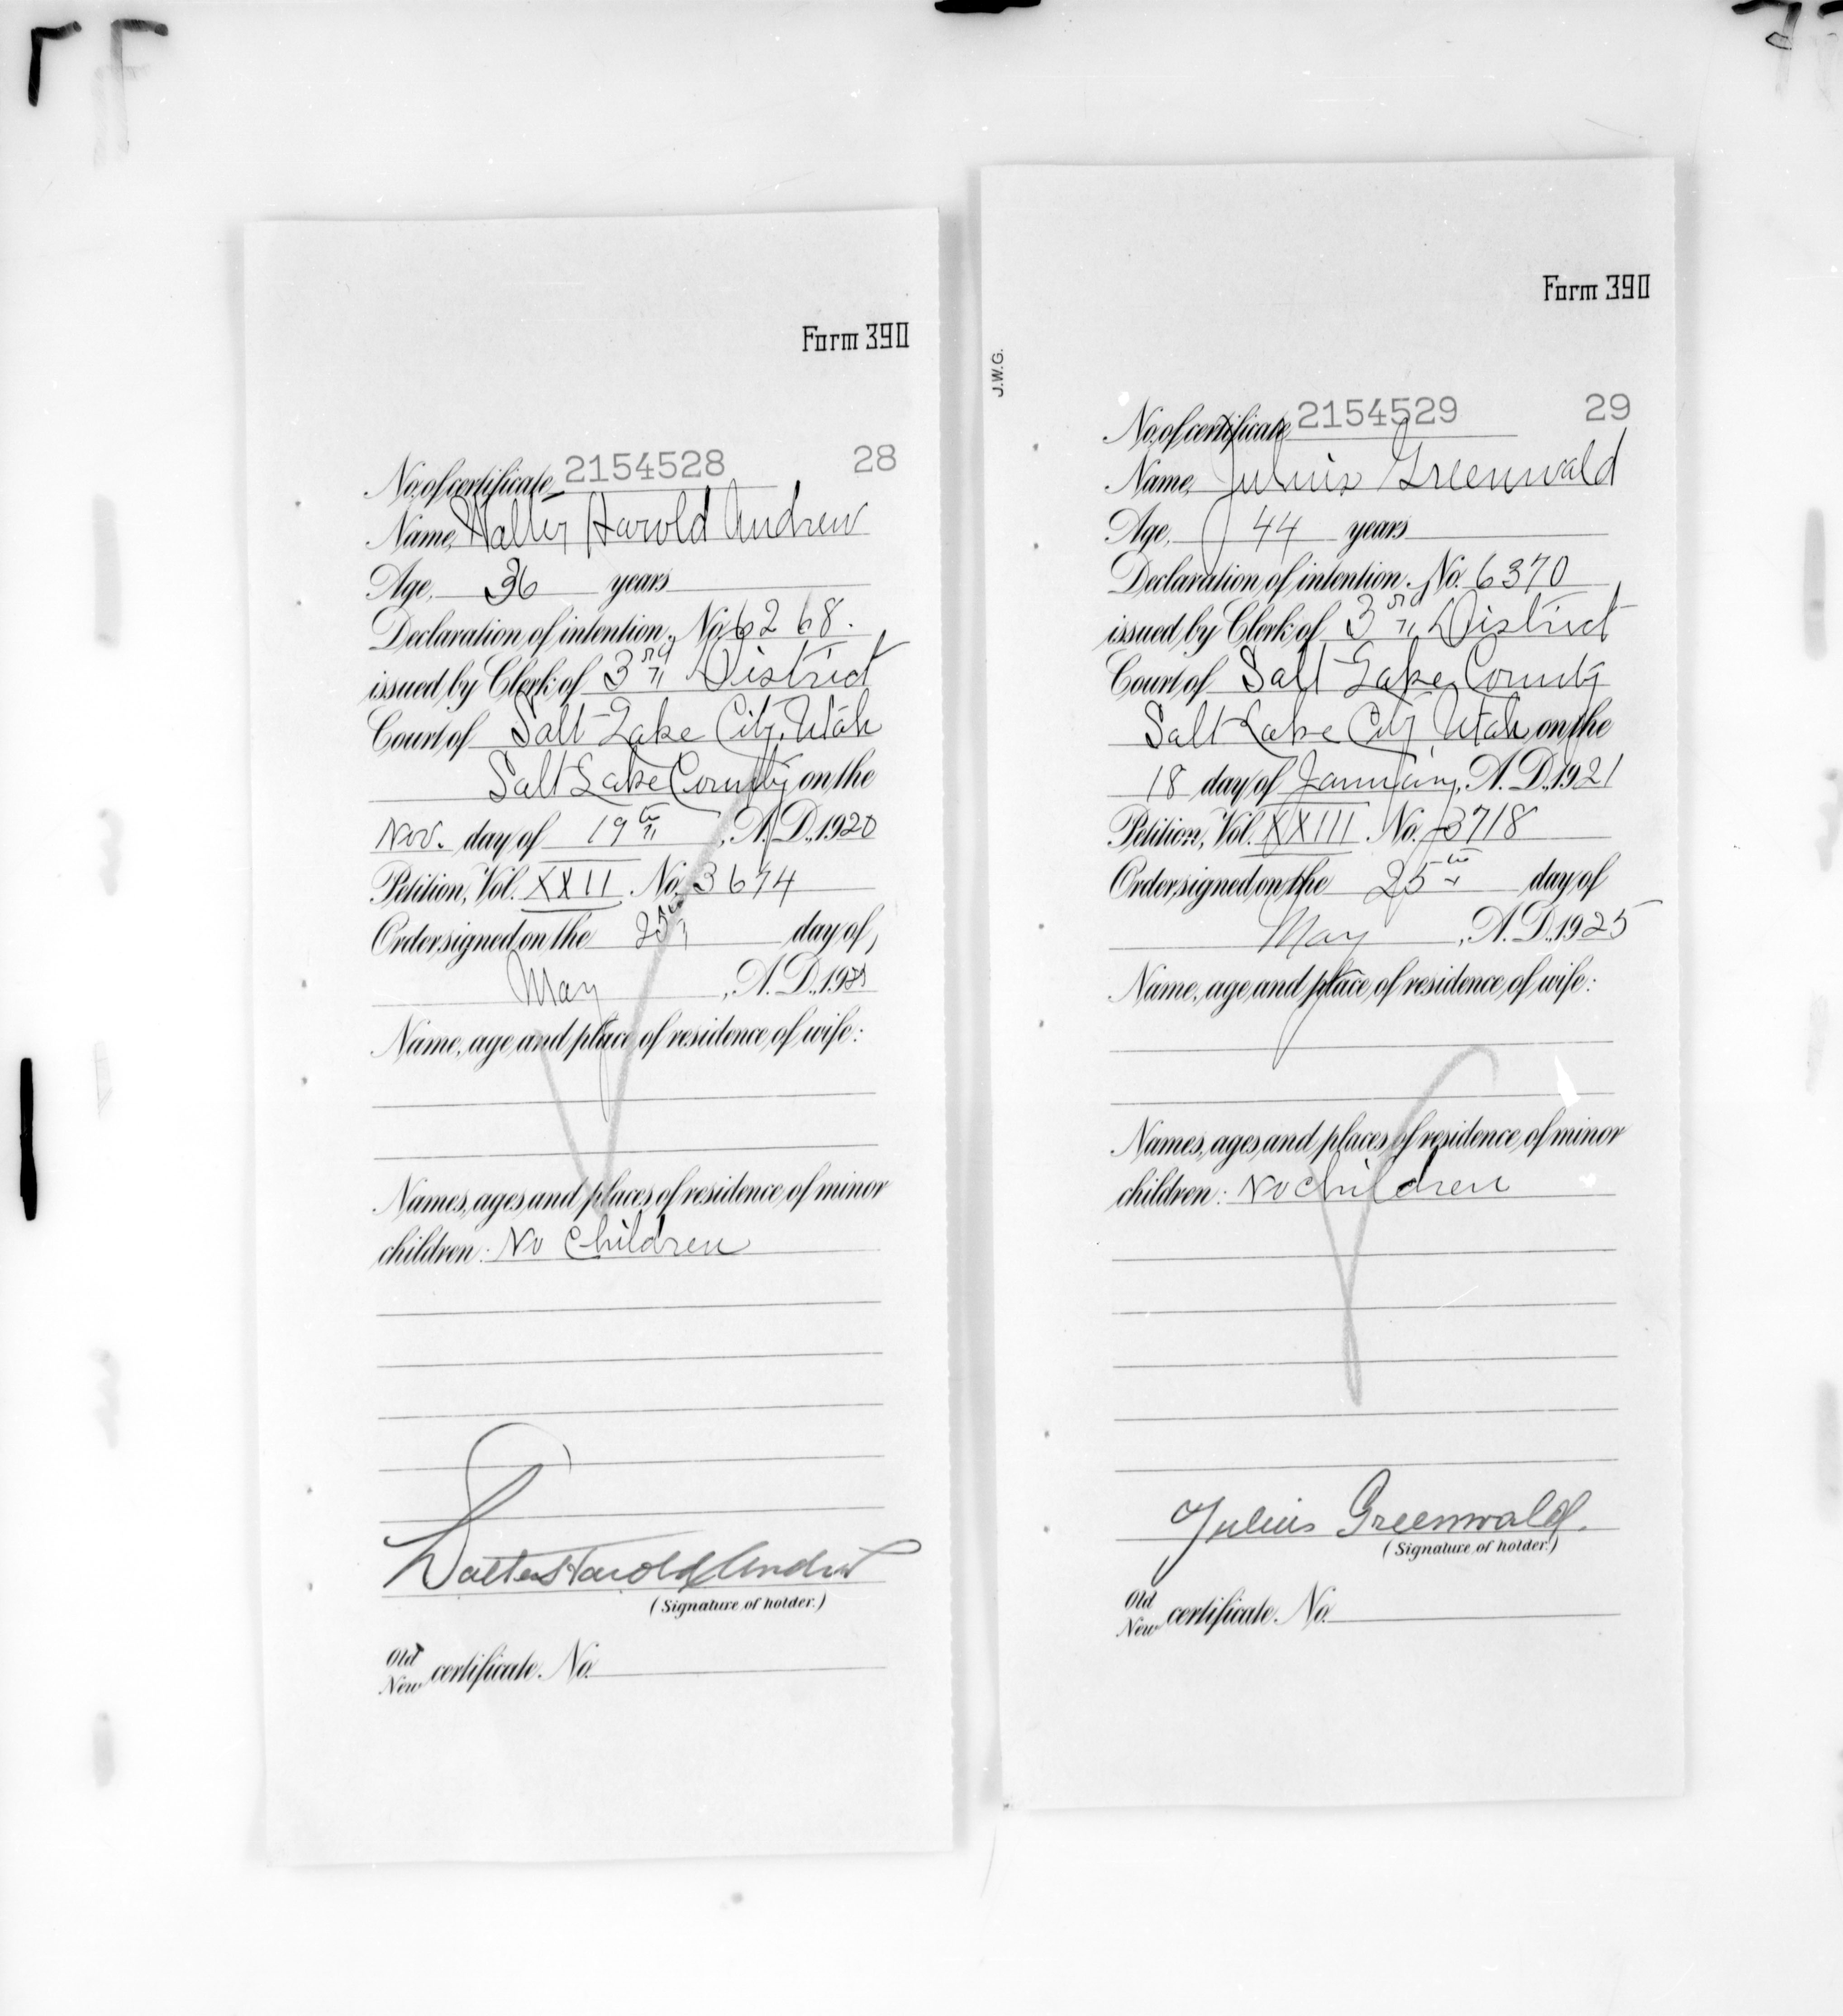 Form 390
No. of certificate, 2154528 28
Name, Walter Harold Andrew
Age, 36 years
Declaration of intention, No. 6268.
issued by Clerk of 3rd District
Court of Salt Lake City, Utah
Salt Lake County on the
Nov. day of 19th, A. D., 1920
Petition, Vol. XXII. No. 3674
Order signed on the 25th day of
May, A. D., 1925
Name, age and place of residence of wife:
Names, ages and places of residence of minor
children: No Children
Walter Harold Andrew
(Signature of holder.)
Old
New certificate. No.
Form 390
J.W.G.
No. of certificate, 2154529 29
Name, Julius Greenwald
Age, 44 years
Declaration of intention, No. 6370
issued by Clerk of 3rd District
Court of Salt Lake County
Salt Lake City, Utah on the
18 day of January, A. D., 1921
Petition, Vol. XXIII. No. 3718
Order signed on the 25th day of
May, A. D., 1925
Name, age and place of residence of wife:
Names, ages and places of residence of minor
children: No children
Julius Greenwald.
(Signature of holder.)
Old
New certificate. No.